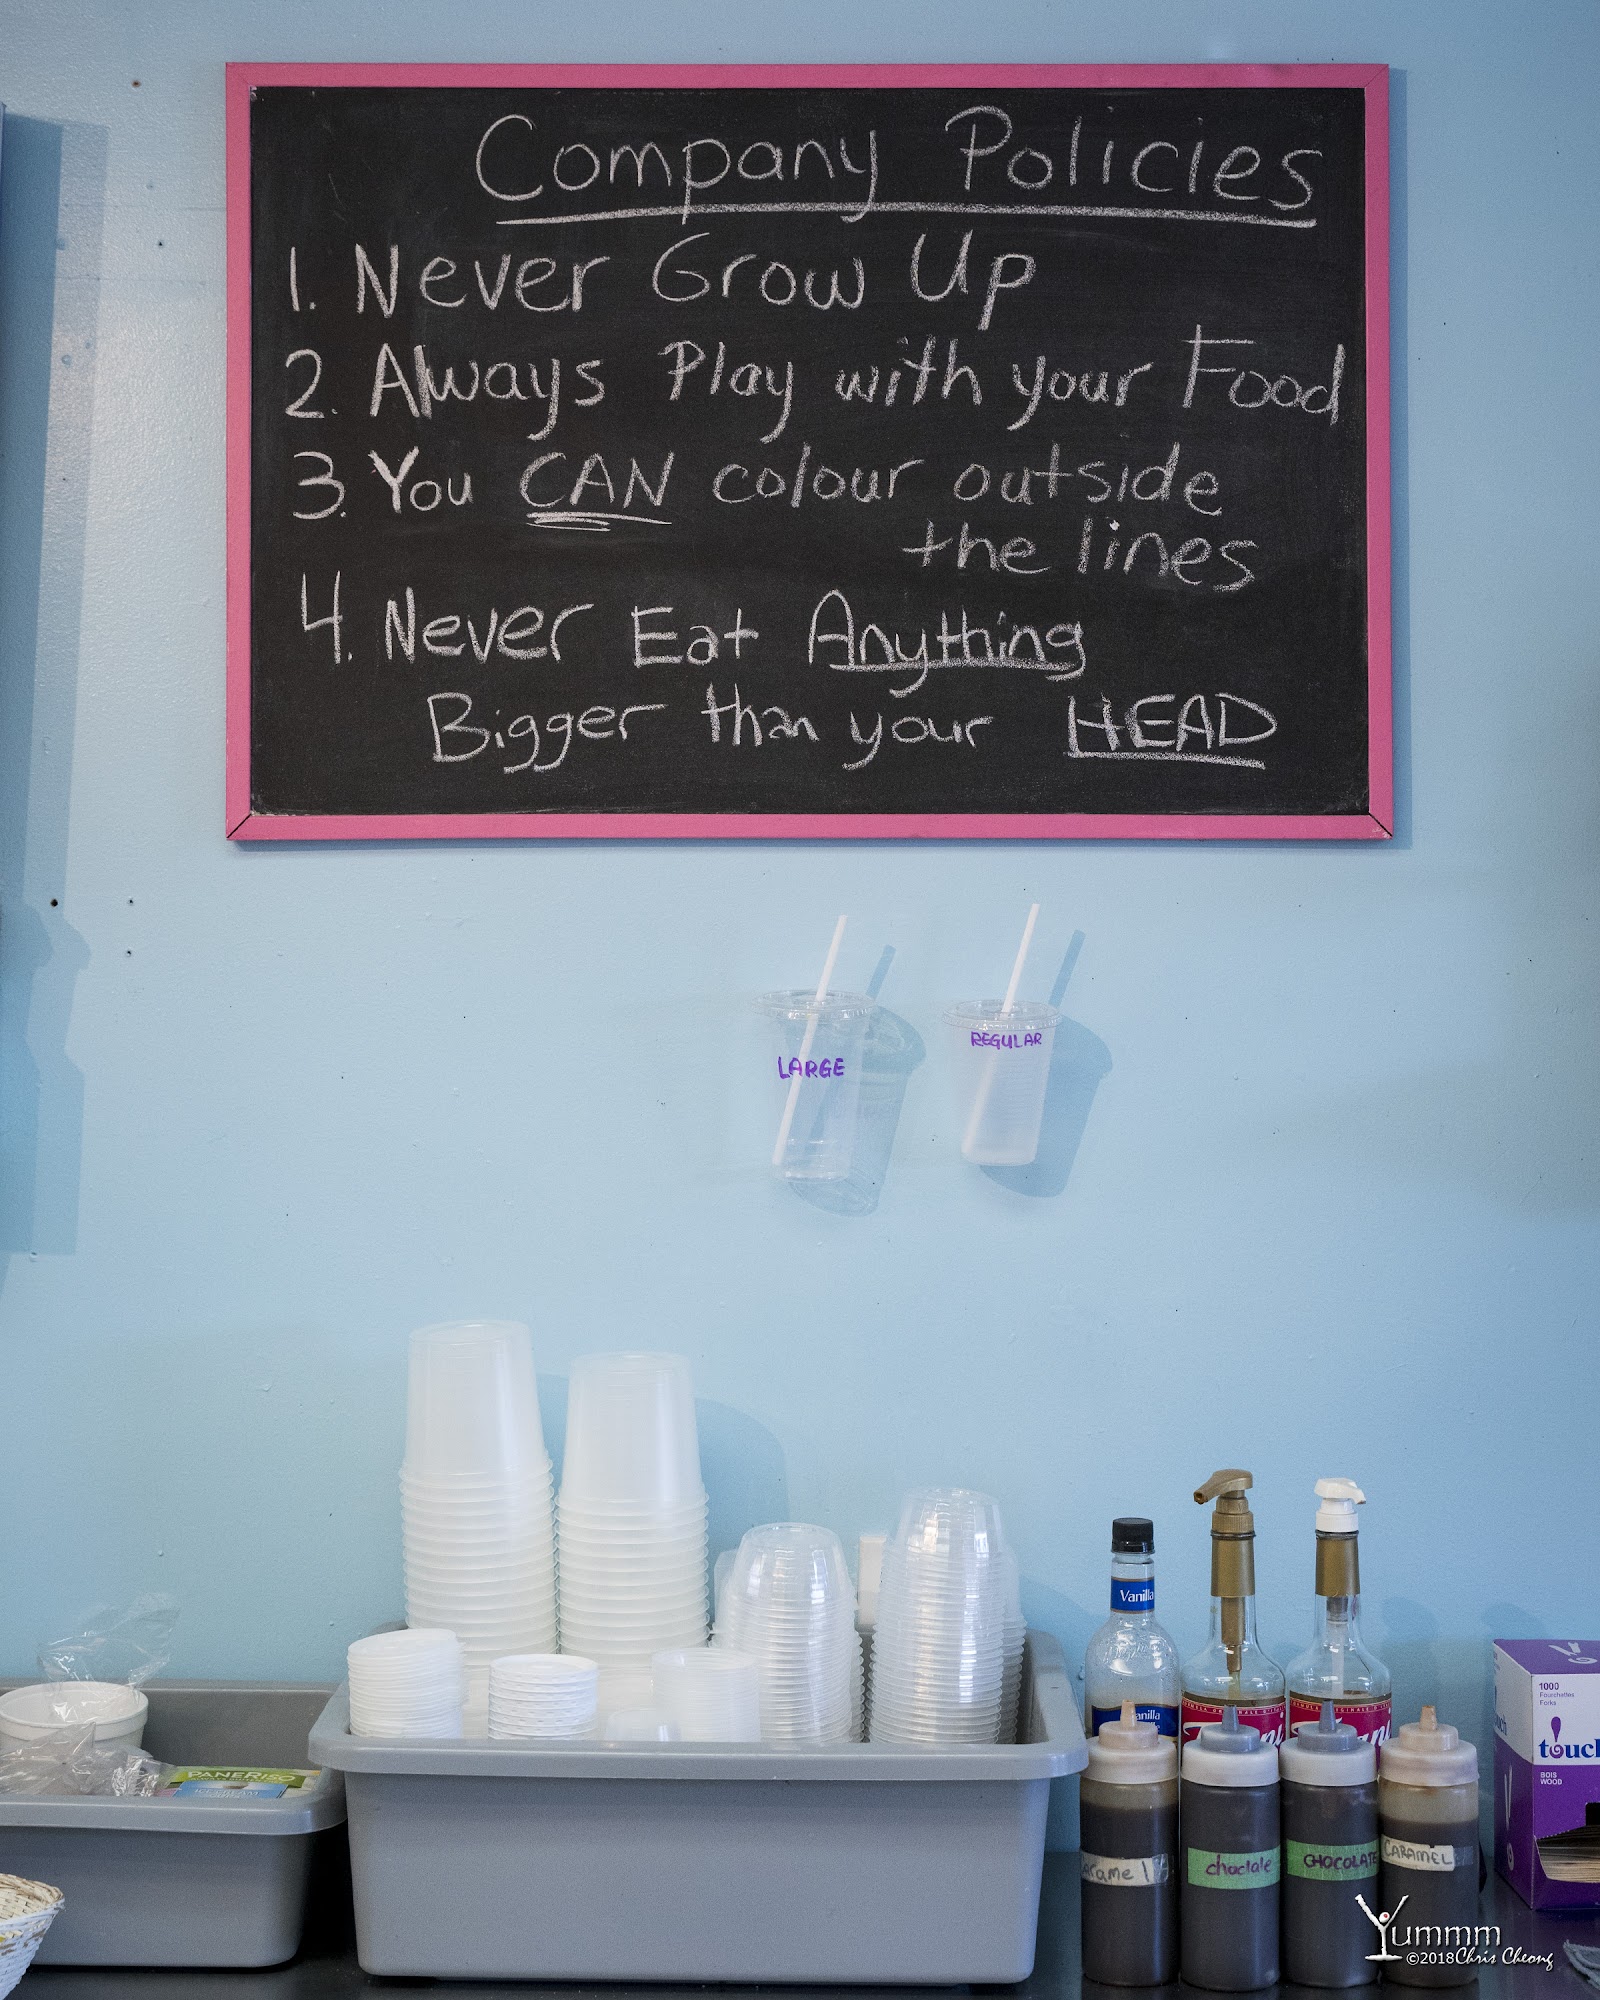 Company Policies
1. Never Grow Up
2. Always Play with your Food
3. You CAN colour outside
the lines
4. Never Eat Anything
Bigger than your HEAD
LARGE
REGULAR
Vanilla
anilla
PANERISO
1000
Fourchettes
Forks
touc
BOIS
WOOD
aramel
choclate
CHOCOLATE
CARAMEL
Yummm
©2018 Chris Cheong